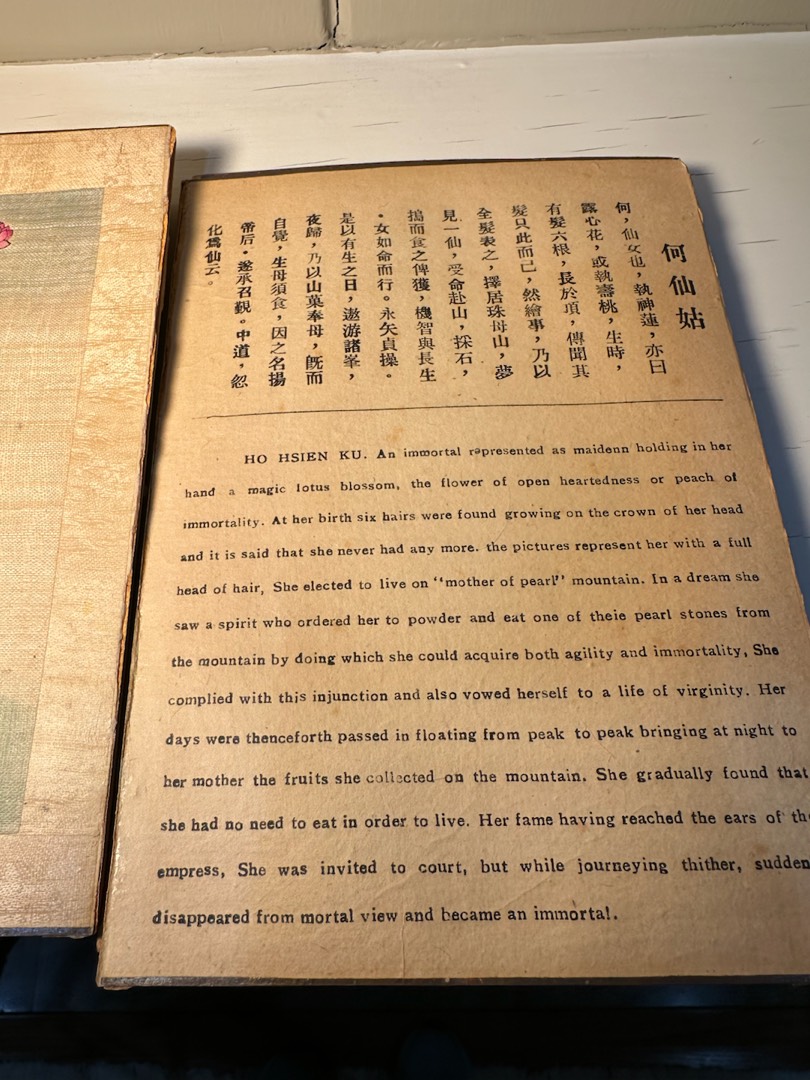 何仙姑
何，仙女也，執神蓮，亦曰
露心花，或執壽桃，生時，
有髮六根，長於項，傳聞其
髮只此而已，然繪事，乃以
全髮表之，擇居珠母山，夢
見一仙，受命赴山，採石，
搗而食之俾獲，機智與長生
。女如命而行。永矢貞操。
是以有生之日，遨游諸峯，
夜歸，乃以山菓奉母，旣而
自覺，生母須食，因之名揚
帝后。遂承召覲。中道，忽
化爲仙云。
HO HSIEN KU. An immortal represented as maidenn holding in her
hand a magic lotus blossom, the flower of open heartedness or peach of
immortality. At her birth six hairs were found growing on the crown of her head
and it is said that she never had any more. the pictures represent her with a full
head of hair, She elected to live on "mother of pearl" mountain. In a dream she
saw a spirit who ordered her to powder and eat one of theie pearl stones from
the mountain by doing which she could acquire both agility and immortality, She
complied with this injunction and also vowed herself to a life of virginity. Her
days were thenceforth passed in floating from peak to peak bringing at night to
her mother the fruits she collected on the mountain. She gradually found that
she had no need to eat in order to live. Her fame having reached the ears of th
empress, She was invited to court, but while journeying thither, sudden
disappeared from mortal view and became an immortal.